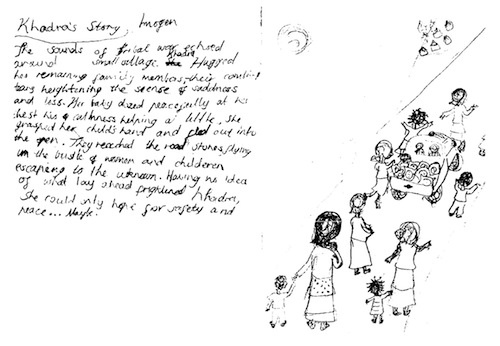 Khadra's Story, Imogen
The sounds of tribal war echoed
around small village. Khadra Hugged
her remaining family members, their
tears heightening the scense of saddness
and loss. Her baby dozed peacefully at his
chest his calmness helping a little, she
grasped her child's hand and fled out into
the open. They reached the road stones flying
in the bustle of women and childeren
escapeing to the unknown. Having no idea
of what lay ahead frightened Khadra,
she could only hope for safety and
peace... Maybe.